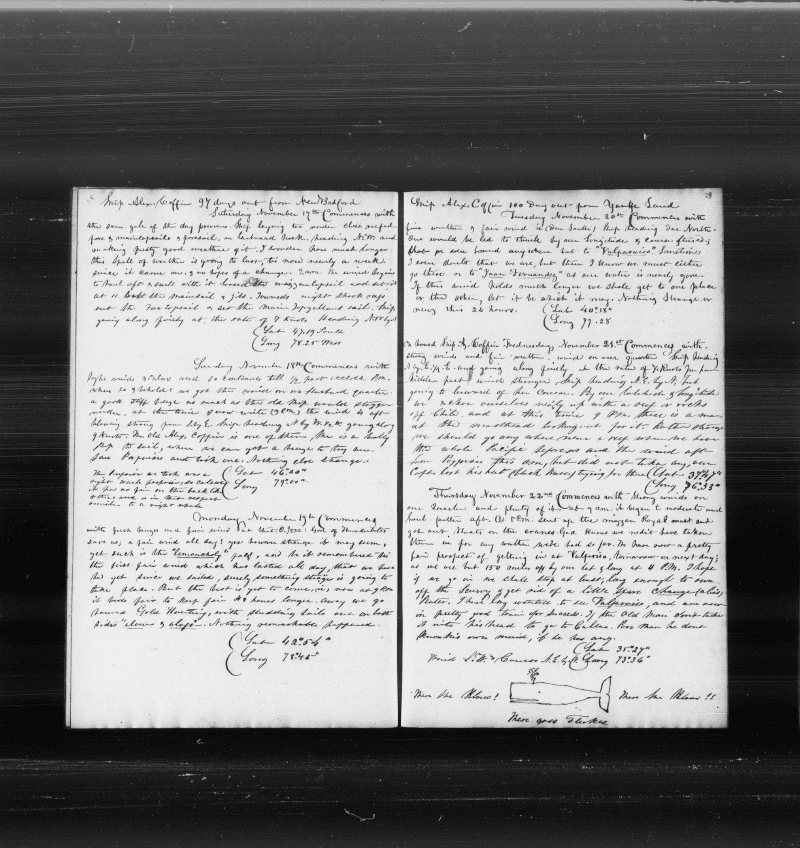 Ship Alex. Coffin 97 days out from New Bedford
Saturday November 17th Commences with
the same gale of the day previous Ship laying to under close reefed
fore & mainspails & foresail, on larboard tack, heading N.W. and
making pretty good weather of it. I wonder how much longer
this spell of weather is going to last, tis now nearly a week
since it came on, & no hopes of a change. 2 am. the wind begins
to haul aft & with it the mizzen topsail and set it
at 11 the mainsail & jib. Towards night shook reefs
out the Foretopsail & set the Main Topgallant sail. Ship
going along finely at the rate of 7 knots Heading
Lat 47.19 South
Long 78.25 West
Sunday November 18th Commences with
light winds & calms and so continues till 1/2 past o'clock P.m.
when lo & behold! we got the wind on our starboard quarter
a good stiff breeze as much as the old ship could stagger
under, at the time I now write (9 P.m.) the wind is aft
blowing strong from S by E. Ship heading N by W. going along
9 knots. The Old Alex. Coffin is one of them. She is a bully
Ship to sail, when we can get a breeze to try her.
Saw Porpoises and took one. Nothing else Strange.
The Porpoise we took was a
right whale porpoise, so called
it has no fin on the back like
others, and is in that respect
similar to a right whale
Lat 46.00"
Long 79.00"
Monday November 19th Commences
with fresh breeze and fair wind God of Thunderbolts
save us, a fair wind all day! yes however strange it may seem,
yet such is the "lemancholy" fact, and be it remembered tis
the first fair wind which has lasted all day, that we have
had yet since we sailed, surely something strange is going to
take place. But the best is yet to come, (i.e.) now at 9 P.m
it bids fair to keep fair 24 hours longer. Away we go
bound Gold Hunting, with studding sails out on both
sides "alow & aloft". Nothing remarkable happened.
Lat 42°54"
Long 78.45"
29
Ship Alex. Coffin 100 Day out from Yankee Land
Tuesday November 20th Commences with
fine weather & fair wind Ship heading Due North.
One would be led to think by our Longitude & course steered,
that we were bound anywhere but to "Valparaiso" Sometimes
I even doubt that we are, but then I know we must either
go there or to "Juan Fernandez" as our water is nearly gone.
If this wind holds much longer we shall get to one place
or the other, let it be which it may. Nothing Strange or
new this 24 hours.
Lat 40.18"
Long 77.28
On board Ship A. Coffin Wednesday, November 21st Commences with
strong winds and fair weather, wind on our quarter Ship heading
N by E 1/2 E. and going along finely, at the rate of 7 1/2 Knots per hour
Middle part wind stronger, Ship heading N.E. by N. but
going to leeward of her Course. By our Latitude & Longitude
we reckon ourselves nearly up with a reef of rocks
off Chili, and at this time of P.m. there is a man
at the masthead looking out for it. Rather strange
we should go any where near a reef when we have
the whole Pacific before us and the wind aft
Saw Porpoises this day, but did not take any, our
Capt. lost his hat (black) trying for them
Lat 37°47"
Long 76°53"
Thursday November 22nd Commences with strong winds on
our quarter and plenty of it at 9 am. it began to moderate and
haul farther aft. At 1 P.m. sent up the mizzen Royal mast and
got our boats on the cranes. God knows we needn't have taken
them in for any weather we've had so far. We have now a pretty
fair prospect of getting in at Valparaiso, tomorrow or next day;
as we are but 150 miles off by our lat & long at 4 P.M. I hope
if we go in we shall stop at least, long enough to run
off the Scurvy & get rid of a little spare Change (alias)
Pewter. I have long wanted to see Valparaiso, and am now
in pretty good train for succeed. If the Old Man don't take
it into his head to go to Callao. Poor Man he dont
know his own mind, if he has any.
Wind S.W. & Courses N.E. by N.
Lat 35°27"
Long 73°36"
There She Blows!
There She Blows!!
There goes Flukes